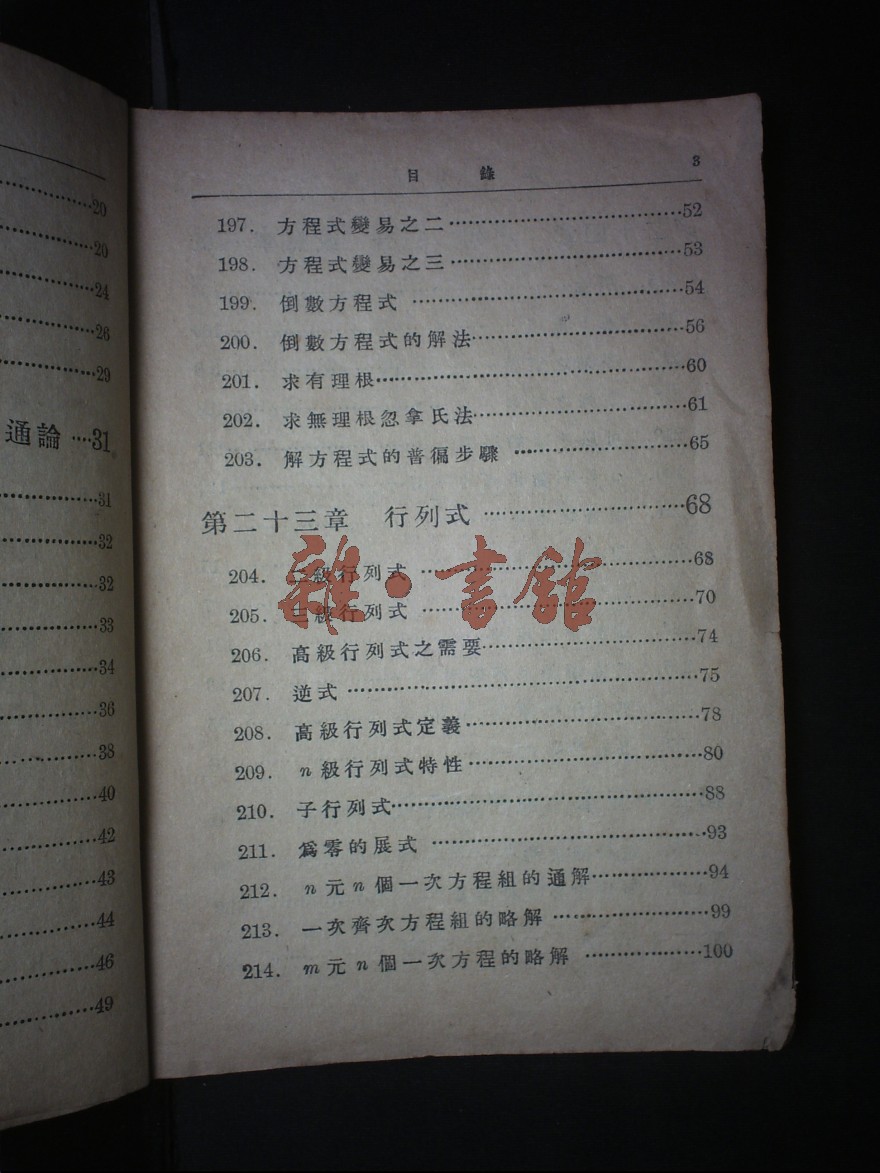 20
20
24
26
29
通論 31
31
32
32
33
34
36
38
40
42
43
44
46
49
目錄 3
197. 方程式變易之二 52
198. 方程式變易之三 53
199. 倒數方程式 54
200. 倒數方程式的解法 56
201. 求有理根 60
202. 求無理根忽拿氏法 61
203. 解方程式的普徧步驟 65
第二十三章 行列式 68
204. 二級行列式 68
205. 三級行列式 70
206. 高級行列式之需要 74
207. 逆式 75
208. 高級行列式定義 78
209. n級行列式特性 80
210. 子行列式 88
211. 爲零的展式 93
212. n元n個一次方程組的通解 94
213. 一次齊次方程組的略解 99
214. m元n個一次方程的略解 100
雜·書館